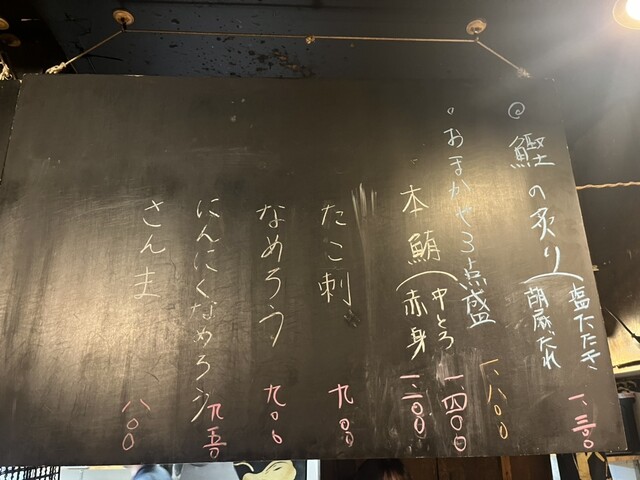 ◎ 鰹の炙り
塩たたき 一、三〇〇
胡麻だれ
○ おまかせ3点盛 一、八〇〇
本鮪
中とろ 一、四〇〇
赤身 一、二〇〇
たこ刺 九〇〇
なめろう 九〇〇
にんにくなめろう 九五〇
さんま 八〇〇